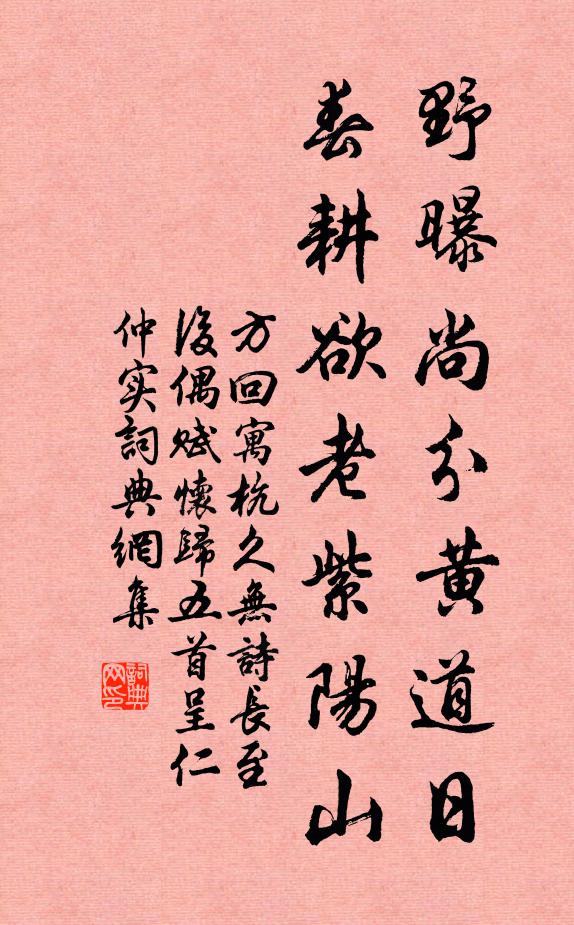 野曝尚分黄道日
春耕欲老紫陽山
方回寓杭久無詩長至
後偶赋懷歸五首呈仁
仲实詞典網集
詞典
网印